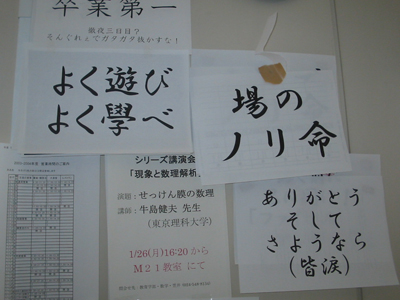 卒業第一
徹夜三日目？
そんぐれぇでガタガタ抜かすな！
よく遊び
よく學べ
場の
ノリ命
シリーズ講演会
「現象と数理解析」
演題：せっけん膜の数理
講師：牛島健夫 先生
(東京理科大学)
1/26(月)16:20から
M21教室 にて
ありがとう
そして
さようなら
(皆涙)